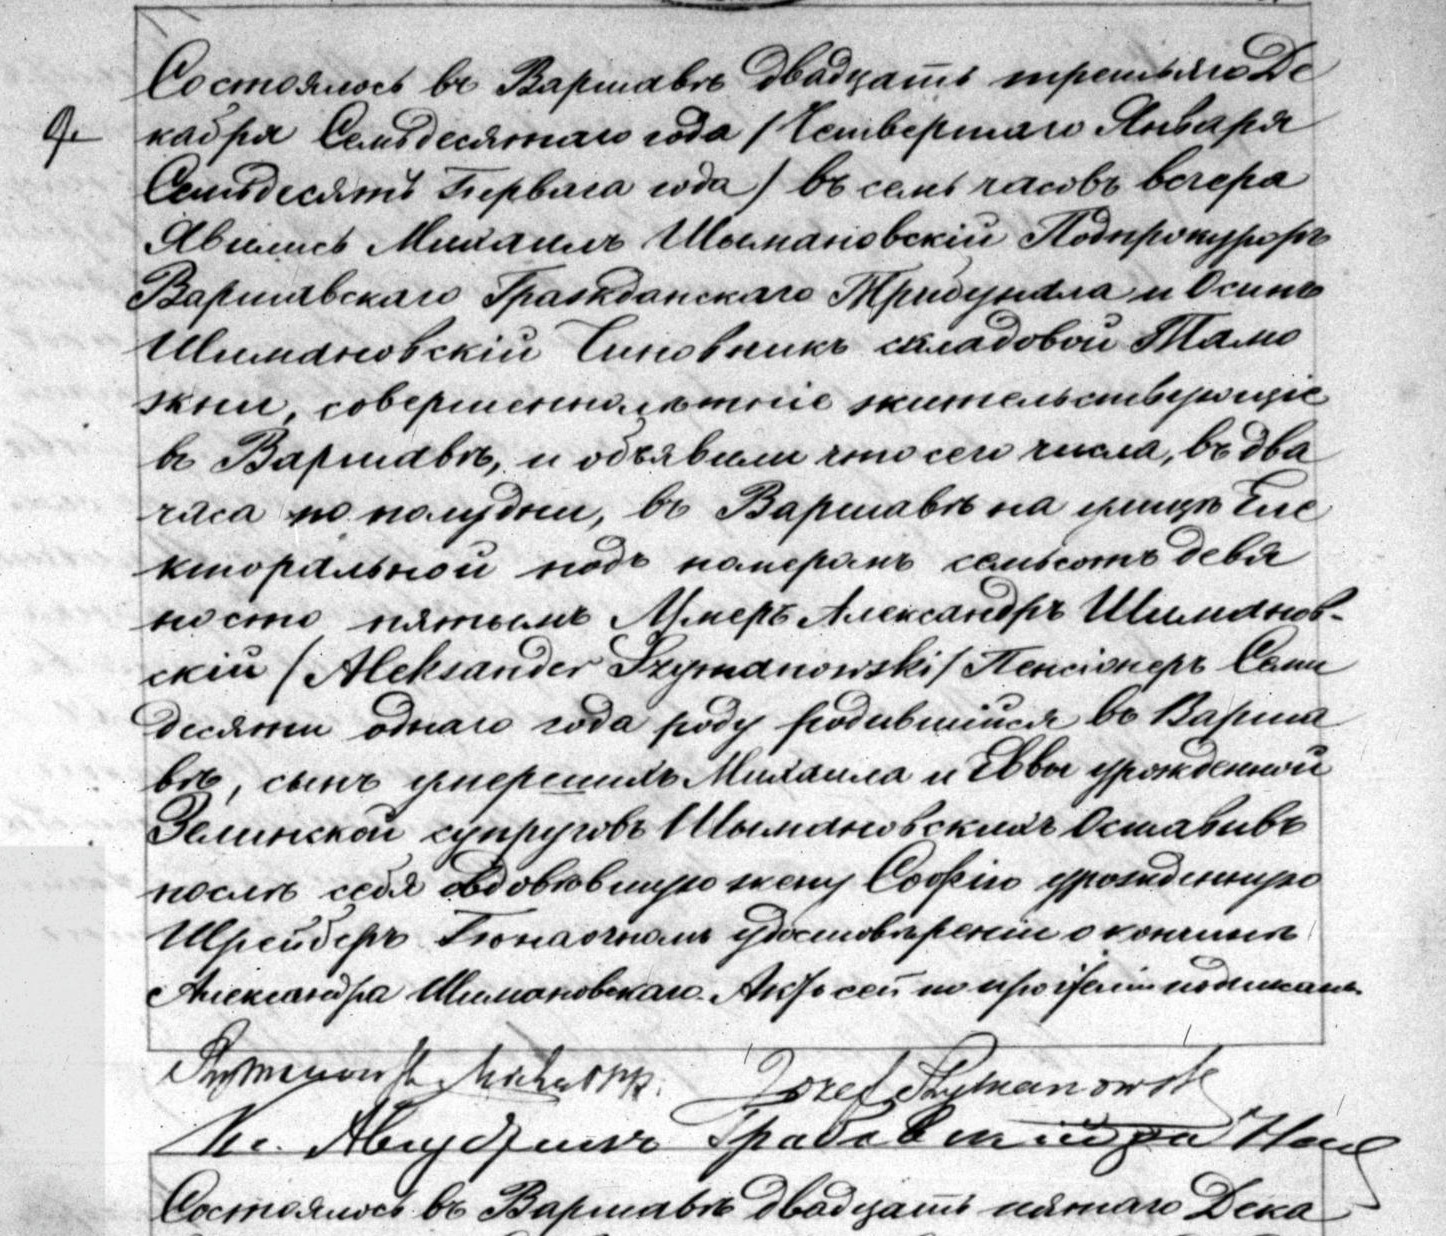 Состоялось въ Варшавѣ двадцать третьяго Де
кабря Семьдесятаго года / Четвертаго Января
Семьдесятъ Перваго года / въ семь часовъ вечера
Явились Михаилъ Шымановскій Подпрокуроръ
Варшавскаго Гражданскаго Трибунала и Осипъ
Шимановскій Чиновникъ складовой Тамо
жни, совершеннолѣтніе жительствующіе
въ Варшавѣ, и объявили что сего числа, въ два
часа по полудни, въ Варшавѣ на улицѣ Еле
кторальной подъ номеромъ семьсотъ девя
носто пятымъ Умеръ Александръ Шиманов-
скій / Aleksander Szymanowski / Пенсіонеръ Семи
десяти однаго года роду родившійся въ Варша
вѣ, сынъ умершихъ Михаила и Еввы урожденной
Зелинской супруговъ Шымановскихъ Оставивъ
послѣ себя овдовѣвшую жену Софію урожденную
Шрейберъ По наочномъ удостовѣреніи о кончинѣ
Александра Шимановскаго. Актъ сей по прочтеніи подписанъ
Szymanowski Michał
Józef Szymanowski
Кс. Августинъ
Состоялось въ Варшавѣ двадцать пятаго Дека